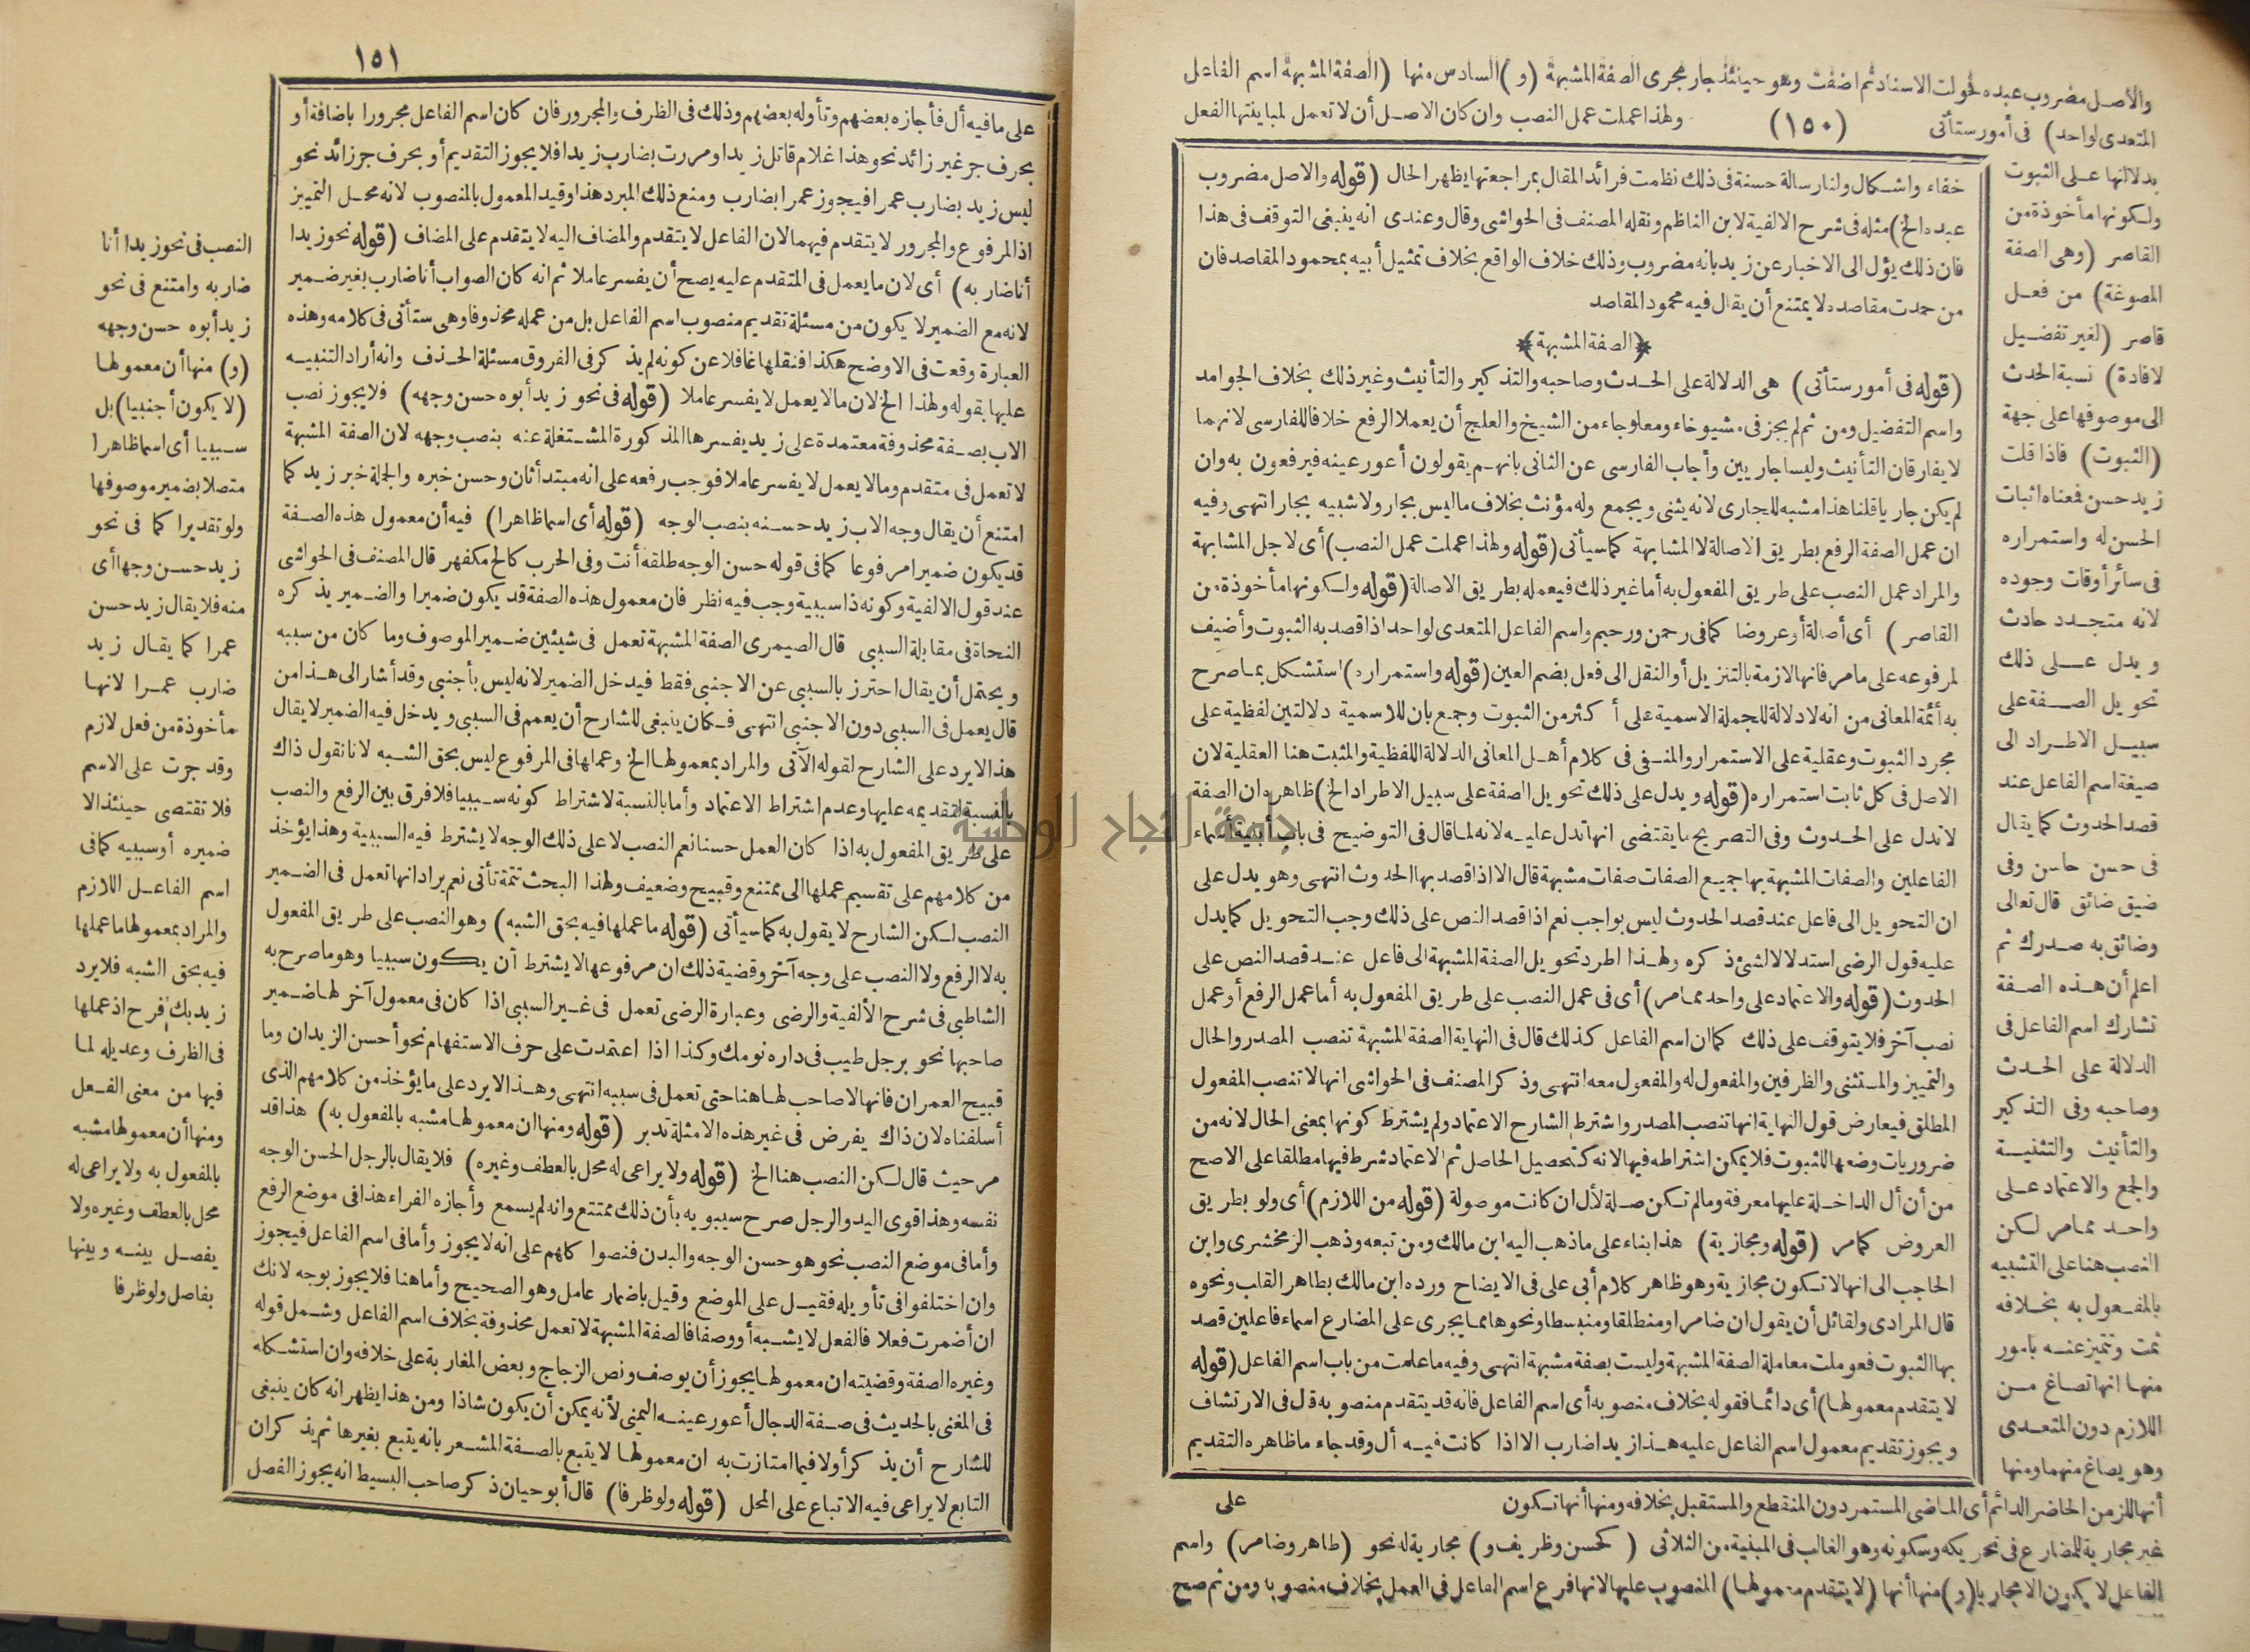 والأصل مضروب عبده فحولت الاسناد ثم اضفت وهو حينئذ جار مجرى الصفة المشبهة (و) السادس منها (الصفة المشبهة اسم الفاعل
المتعدى لواحد) فى أمور ستأتى
(١٥٠)
ولهذا عملت عمل النصب وان كان الاصل أن لا تعمل لمباينتها الفعل
بدلالتها على الثبوت
ولكونها مأخوذة من
القاصر (وهى الصفة
المصوغة) من فعل
قاصر (لغير تفضيل
لافادة) نسبة الحدث
الى موصوفها على جهة
(الثبوت) فاذا قلت
زيد حسن فمعناه اثبات
الحسن له واستمراره
فى سائر أوقات وجوده
لانه متجدد حادث
ويدل على ذلك
تحويل الصفة على
سبيل الاطراد الى
صيغة اسم الفاعل عند
قصد الحدوث كما يقال
فى حسن حاسن وفى
ضيق ضائق قال تعالى
وضائق به صدرك ثم
اعلم أن هذه الصفة
تشارك اسم الفاعل فى
الدلالة على الحدث
وصاحبه وفى التذكير
والتأنيث والتثنية
والجمع والاعتماد على
واحد مما مر لكن
النصب هنا على التشبيه
بالمفعول به بخلافه
ثمت وتتميز عنه بامور
منها انها تصاغ من
اللازم دون المتعدى
وهو يصاغ منهما ومنها
أنها للزمن الحاضر الدائم أى الماضى المستمر دون المنقطع والمستقبل بخلافه ومنها أنها تكون
غير مجارية للمضارع فى تحريكه وسكونه وهو الغالب فى المبنية من الثلاثى (كحسن وظريف و) مجارية له نحو (طاهر وضامر) واسم
الفاعل لا يكون الا مجاريا (و) منها أنها (لا يتقدم معمولها) المنصوب عليها لانها فرع اسم الفاعل فى العمل بخلاف منصوبه ومن ثم صح
خفاء واشكال ولنا رسالة حسنة فى ذلك نظمت فرائد المقال بمراجعتها يظهر الحال (قوله والاصل مضروب
عبده الخ) مثله فى شرح الالفية لابن الناظم ونقله المصنف فى الحواشى وقال وعندى انه ينبغى التوقف فى هذا
فان ذلك يؤل الى الاخبار عن زيد بانه مضروب وذلك خلاف الواقع بخلاف تمثيل أبيه بمحمود المقاصد فان
من حمدت مقاصده لا يمتنع أن يقال فيه محمود المقاصد
﴿الصفة المشبهة﴾
(قوله فى أمور ستأتى) هى الدلالة على الحدث وصاحبه والتذكير والتأنيث وغير ذلك بخلاف الجوامد
واسم التفضيل ومن ثم لم يجز فى مشيوخاء ومعلوجاء من الشيخ والعلج أن يعملا الرفع خلافا للفارسى لانهما
لا يفارقان التأنيث وليسا جاريين وأجاب الفارسى عن الثانى بانهم يقولون أعور عينه فيرفعون به وان
لم يكن جاريا قلنا هذا مشبه للجارى لانه يثنى ويجمع وله مؤنث بخلاف ما ليس بجار ولا شبيه بجار انتهى وفيه
ان عمل الصفة الرفع بطريق الاصالة لا المشابهة كما سيأتى (قوله ولهذا عملت عمل النصب) أى لاجل المشابهة
والمراد عمل النصب على طريق المفعول به أما غير ذلك فيعمله بطريق الاصالة (قوله ولكونها مأخوذة من
القاصر) أى أصالة أو عروضا كما فى رحمن ورحيم واسم الفاعل المتعدى لواحد اذا قصد به الثبوت وأضيف
لمرفوعه على ما مر فانها لازمة بالتنزيل أو النقل الى فعل بضم العين (قوله واستمراره) استشكل بما صرح
به أئمة المعانى من انه لا دلالة للجملة الاسمية على أكثر من الثبوت وجمع بان للاسمية دلالتين لفظية على
مجرد الثبوت وعقلية على الاستمرار والمنفى فى كلام أهل المعانى الدلالة اللفظية والمثبت هنا العقلية لان
الاصل فى كل ثابت استمراره (قوله ويدل على ذلك تحويل الصفة على سبيل الاطراد الخ) ظاهره ان الصفة
لا تدل على الحدوث وفى التصريح ما يقتضى انها تدل عليه لانه لما قال فى التوضيح فى باب أبنية أسماء
الفاعلين والصفات المشبهة بها جميع الصفات صفات مشبهة قال الا اذا قصد بها الحدوث انتهى وهو يدل على
ان التحويل الى فاعل عند قصد الحدوث ليس بواجب نعم اذا قصد النص على ذلك وجب التحويل كما يدل
عليه قول الرضى استدلالا لشئ ذكره ولهذا اطرد تحويل الصفة المشبهة الى فاعل عند قصد النص على
الحدوث (قوله والاعتماد على واحد مما مر) أى فى عمل النصب على طريق المفعول به أما عمل الرفع أو عمل
نصب آخر فلا يتوقف على ذلك كما ان اسم الفاعل كذلك قال فى النهاية الصفة المشبهة تنصب المصدر والحال
والتمييز والمستثنى والظرفين والمفعول له والمفعول معه انتهى وذكر المصنف فى الحواشى انها لا تنصب المفعول
المطلق فيعارض قول النهاية انها تنصب المصدر واشترط الشارح الاعتماد ولم يشترط كونها بمعنى الحال لانه من
ضروريات وضعها للثبوت فلا يمكن اشتراطه فيها لانه كتحصيل الحاصل ثم الاعتماد شرط فيها مطلقا على الاصح
من أن أل الداخلة عليها معرفة وما لم تكن صلة لأل ان كانت موصولة (قوله من اللازم) أى ولو بطريق
العروض كما مر (قوله ومجازية) هذا بناء على ما ذهب اليه ابن مالك ومن تبعه وذهب الزمخشرى وابن
الحاجب الى انها لا تكون مجازية وهو ظاهر كلام أبى على فى الايضاح ورده ابن مالك بطاهر القلب ونحوه
قال المرادى ولقائل أن يقول ان ضامرا ومنطلقا ومنبسطا ونحوها مما يجرى على المضارع اسماء فاعلين قصد
بها الثبوت فعوملت معاملة الصفة المشبهة وليست بصفة مشبهة انتهى وفيه ما علمت من باب اسم الفاعل (قوله
لا يتقدم معمولها) أى دائما فقوله بخلاف منصوبه أى اسم الفاعل فانه قد يتقدم منصوبه قال فى الارتشاف
ويجوز تقديم معمول اسم الفاعل عليه هذا زيدا ضارب الا اذا كانت فيه أل وقد جاء ما ظاهره التقديم
على
١٥١
على ما فيه أل فأجازه بعضهم وتأوله بعضهم وذلك فى الظرف والمجرور فان كان اسم الفاعل مجرورا باضافة أو
بحرف جر غير زائد نحو هذا غلام قاتل زيدا ومررت بضارب زيدا فلا يجوز التقديم أو بحرف جر زائد نحو
ليس زيد بضارب عمرا فيجوز عمرا بضارب ومنع ذلك المبرد هذا وقيد المعمول بالمنصوب لانه محل التمييز
اذ المرفوع والمجرور لا يتقدم فيهما لان الفاعل لا يتقدم والمضاف اليه لا يتقدم على المضاف (قوله نحو زيدا
أنا ضاربه) أى لان ما يعمل فى المتقدم عليه يصح أن يفسر عاملا ثم انه كان الصواب أنا ضارب بغير ضمير
لانه مع الضمير لا يكون من مسئلة تقديم منصوب اسم الفاعل بل من عمله محذوفا وهى ستأتى فى كلامه وهذه
العبارة وقعت فى الاوضح هكذا فنقلها غافلا عن كونه لم يذكر فى الفروق مسئلة الحذف وانه أراد التنبيه
عليها بقوله ولهذا الخ لان ما لا يعمل لا يفسر عاملا (قوله فى نحو زيد أبوه حسن وجهه) فلا يجوز نصب
الاب بصفة محذوفة معتمدة على زيد يفسرها المذكورة المشتغلة عنه بنصب وجهه لان الصفة المشبهة
لا تعمل فى متقدم وما لا يعمل لا يفسر عاملا فوجب رفعه على انه مبتدأ ثان وحسن خبره والجملة خبر زيد كما
امتنع أن يقال وجه الاب زيد حسنه بنصب الوجه (قوله أى اسما ظاهرا) فيه أن معمول هذه الصفة
قد يكون ضميرا مرفوعا كما فى قوله حسن الوجه طلقه أنت وفى الحرب كالح مكفهر قال المصنف فى الحواشى
عند قول الالفية وكونه ذا سببية وجب فيه نظر فان معمول هذه الصفة قد يكون ضميرا والضمير يذكره
النحاة فى مقابلة السببى قال الصيمرى الصفة المشبهة تعمل فى شيئين ضمير الموصوف وما كان من سببه
ويحتمل أن يقال احترز بالسببى عن الاجنبى فقط فيدخل الضمير لانه ليس بأجنبى وقد أشار الى هذا من
قال يعمل فى السببى دون الاجنبى انتهى فكان ينبغى للشارح أن يعمم فى السببى ويدخل فيه الضمير لا يقال
هذا لا يرد على الشارح لقوله الآتى والمراد بمعمولها الخ وعملها فى المرفوع ليس بحق الشبه لانا نقول ذاك
بالنسبة لتقديمه عليها وعدم اشتراط الاعتماد وأما بالنسبة لاشتراط كونه سببيا فلا فرق بين الرفع والنصب
على طريق المفعول به اذا كان العمل حسنا نعم النصب لا على ذلك الوجه لا يشترط فيه السببية وهذا يؤخذ
من كلامهم على تقسيم عملها الى ممتنع وقبيح وضعيف ولهذا البحث تتمة تأتى نعم يراد انها تعمل فى الضمير
النصب لكن الشارح لا يقول به كما سيأتى (قوله ما عملها فيه بحق الشبه) وهو النصب على طريق المفعول
به لا الرفع ولا النصب على وجه آخر وقضية ذلك ان مرفوعها لا يشترط أن يكون سببيا وهو ما صرح به
الشاطبى فى شرح الألفية والرضى وعبارة الرضى تعمل فى غير السببى اذا كان فى معمول آخر لها ضمير
صاحبها نحو برجل طيب فى داره نومك وكذا اذا اعتمدت على حرف الاستفهام نحو أحسن الزيدان وما
قبيح العمران فانها لا صاحب لها هنا حتى تعمل فى سببه انتهى وهذا لا يرد على ما يؤخذ من كلامهم الذى
أسلفناه لان ذاك يفرض فى غير هذه الامثلة تدبر (قوله ومنها ان معمولها مشبه بالمفعول به) هذا قد
مر حيث قال لكن النصب هنا الخ (قوله ولا يراعى له محل بالعطف وغيره) فلا يقال بالرجل الحسن الوجه
نفسه وهذا قوى اليد والرجل صرح سيبويه بأن ذلك ممتنع وانه لم يسمع وأجازه الفراء هذا فى موضع الرفع
وأما فى موضع النصب نحو هو حسن الوجه والبدن فنصوا كلهم على انه لا يجوز وأما فى اسم الفاعل فيجوز
وان اختلفوا فى تأويله فقيل على الموضع وقيل باضمار عامل وهو الصحيح وأما هنا فلا يجوز بوجه لانك
ان أضمرت فعلا فالفعل لا يشبه أو وصفا فالصفة المشبهة لا تعمل محذوفة بخلاف اسم الفاعل وشمل قوله
وغيره الصفة وقضيته ان معمولها يجوز أن يوصف ونص الزجاج وبعض المغاربة على خلافه وان استشكله
فى المغنى بالحديث فى صفة الدجال أعور عينه اليمنى لأنه يمكن أن يكون شاذا ومن هذا يظهر انه كان ينبغى
للشارح أن يذكر أولا فيما امتازت به ان معمولها لا يتبع بالصفة المشعر بانه يتبع بغيرها ثم يذكر ان
التابع لا يراعى فيه الاتباع على المحل (قوله ولو ظرفا) قال أبو حيان ذكر صاحب البسيط انه يجوز الفصل
النصب فى نحو زيدا أنا
ضاربه وامتنع فى نحو
زيد أبوه حسن وجهه
(و) منها أن معمولها
(لا يكون أجنبيا) بل
سببيا أى اسما ظاهرا
متصلا بضمير موصوفها
ولو تقديرا كما فى نحو
زيد حسن وجها أى
منه فلا يقال زيد حسن
عمرا كما يقال زيد
ضارب عمرا لانها
مأخوذة من فعل لازم
وقد جرت على الاسم
فلا تقتضى حينئذ الا
ضميره أو سببيه كما فى
اسم الفاعل اللازم
والمراد بمعمولها ما عملها
فيه بحق الشبه فلا يرد
زيد بك فرح اذ عملها
فى الظرف وعديله لما
فيها من معنى الفعل
ومنها أن معمولها مشبه
بالمفعول به ولا يراعى له
محل بالعطف وغيره ولا
يفصل بينه وبينها
بفاصل ولو ظرفا
جامعة النجاح الوطنية